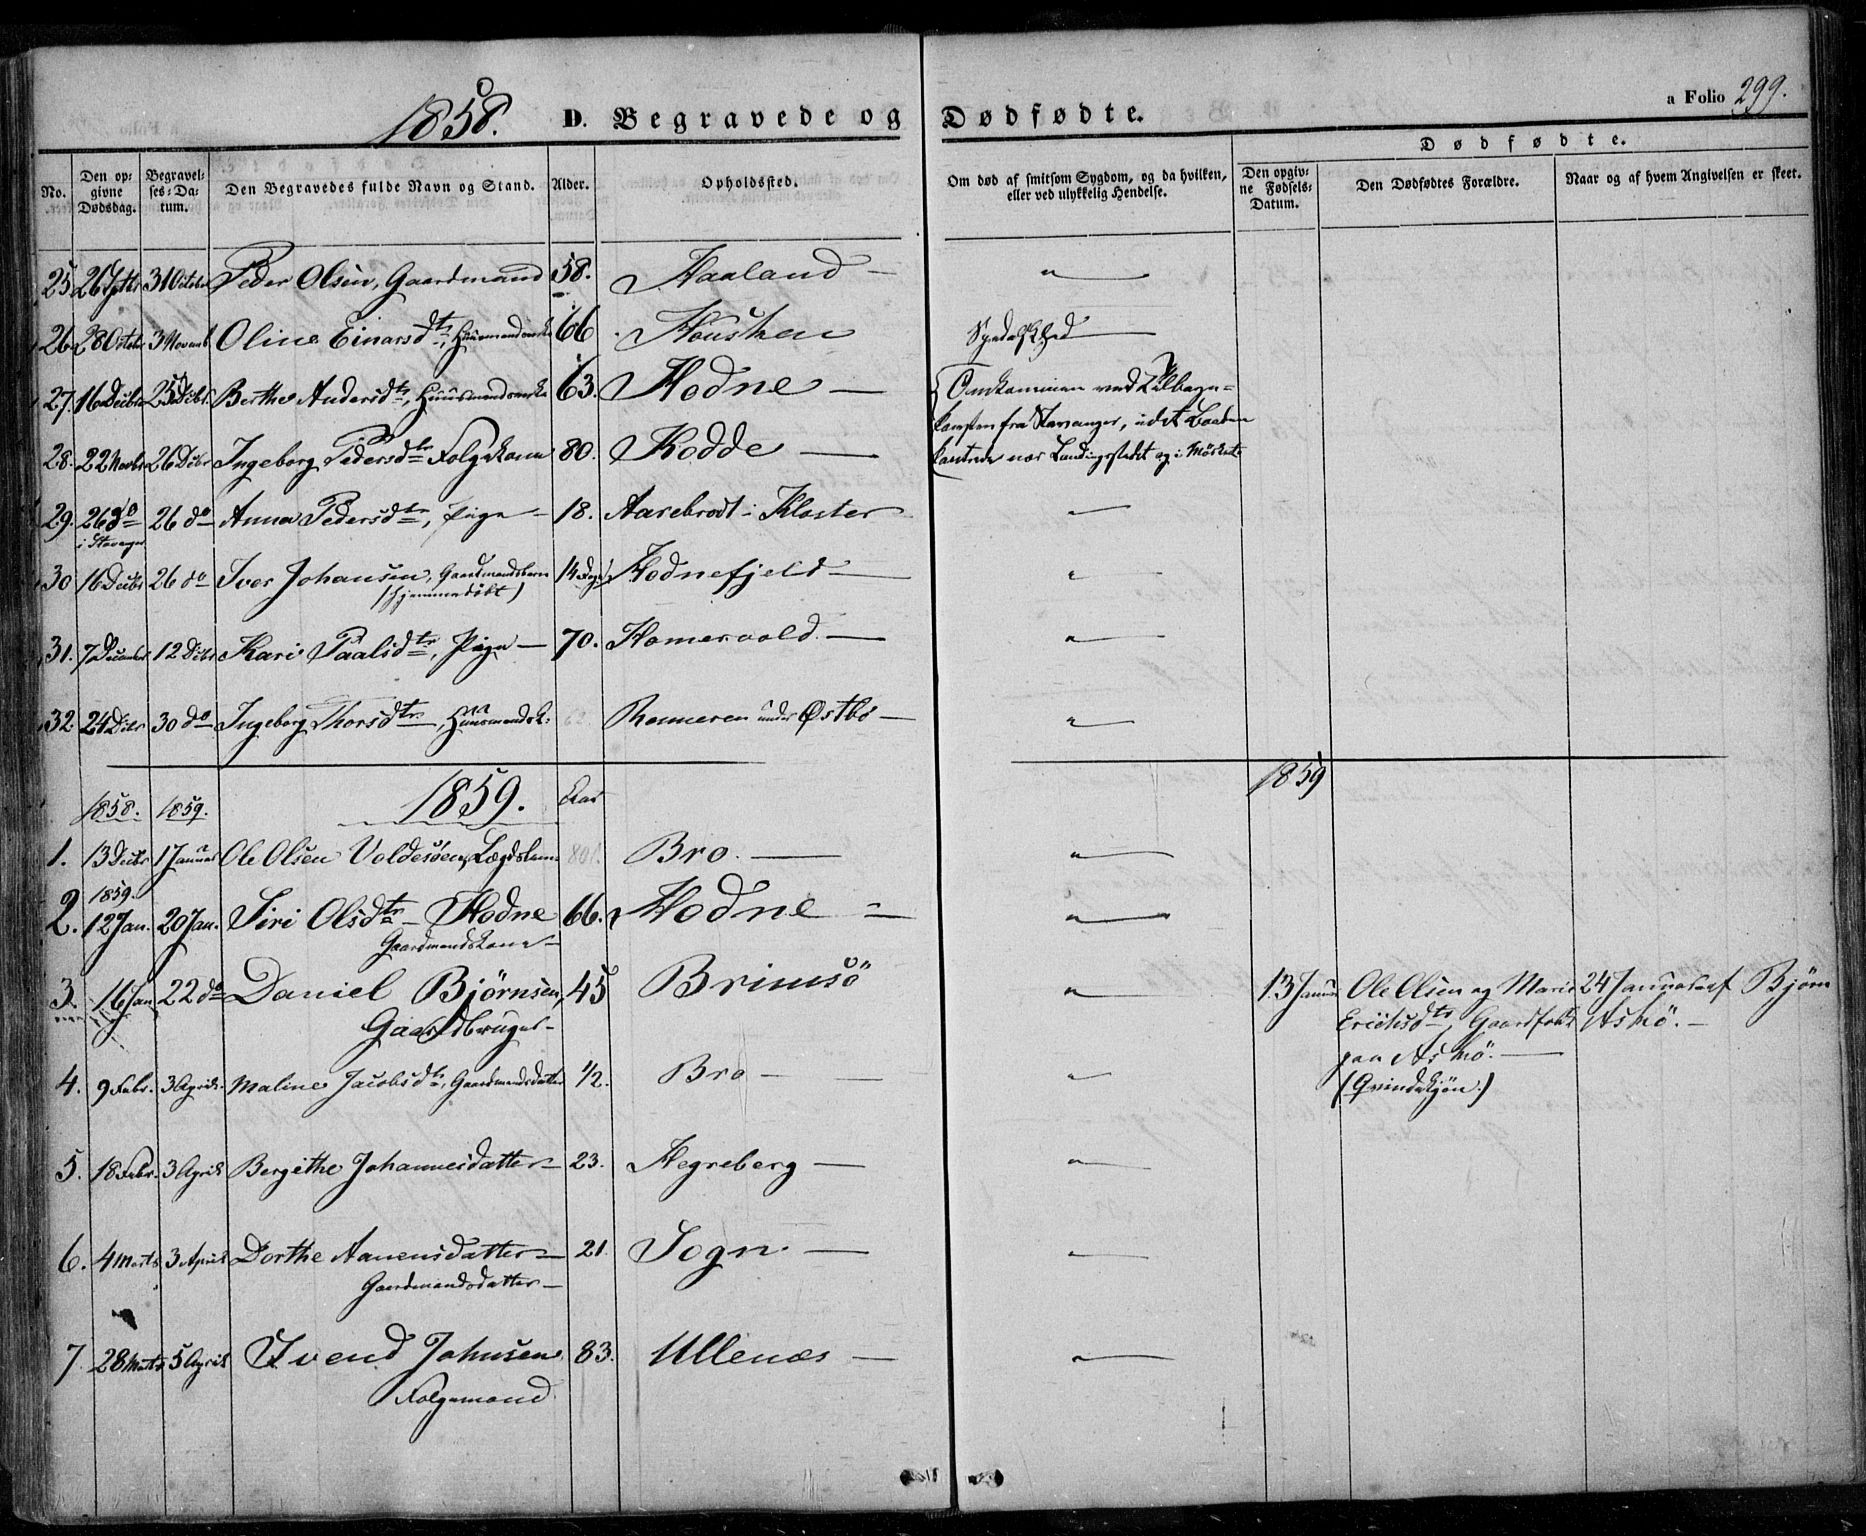 1858. D. Begravede og Dødfødte. a Folio 299.
No. Den opgivne Dødsdag. Begravelses-Datum. Den Begravedes fulde Navn og Stand. Alder. Opholdssted. Om død af smitsom Sygdom, og da hvilken, eller ved ulykkelig Hendelse. Dødfødte. Den opgivne Fødsels-Datum. Den Dødfødtes Forældre. Naar og af hvem Angivelsen er skeet.
25 26 31 Octobr Peder Olsen, Gaardmand 58. Haaland — "
26 28 Octobr 3 Novemb Oline Einarsdtr, 66 Housken
27. 16 Decbr 25 Dcbr. Berthe Andersdtr, 63. Hodne — Omkommen ved
28. 22 Novbr 26 Dcbr Ingeborg Pedersdtr Folgekone 80. Rodde — fra Stavanger, idet Baaden
kantrede nær Landingsstedet og i Mørket
29. 26 do 26 do Anna Pedersdtr, Pige — 18. Aarebrodt i Kloster "
i Stavanger
30 16 Decbr 26 do Iver Johansen, Gaardmandsbarn 14 Dage Hodnefjeld — "
(hjemmedøbt)
31. 7 December 12 Dcbr Kari Paalsdtr, Pige — 70. Homervold. — "
32. 24 Dcbr 30 do Ingeborg Thorsdtr, Huusmandsk: 62. Rameren under Østbø — "
1858. 1859. 1859. Aar 1859
1. 13 Decbr 17 Januar Ole Olsen Voldesøen, Lægdslem 80. Bro. — "
1859.
2. 12 Jan. 20 Jan. Siri Olsdtr Hodne 66. Hodne — "
Gaardmandskone —
3. 16 Jan 22 do Daniel Bjørnsen, 45 Brimsö " 13 Januar Ole Olsen og Marie 24 Januar af Bjørn
Gaardbruger — Erichsdtr, Gaardfolk Askö. —
paa Askö. —
4. 9 Febr. 3 April. Maline Jacobsdtr, Gaardmandsdatter 1/2. Bro — "
(Qvindekjøn.)
5. 18 Febr. 3 April Bergithe Johannesdatter — 23. Hegreberg — "
6. 4 Marts 3 April Dorthe Aanensdatter — 21. Sogn. — "
Gaardmandsdatter —
7. 28 Marts 5 April Svend Johnsen 83. Ullenæs — "
Folgemand